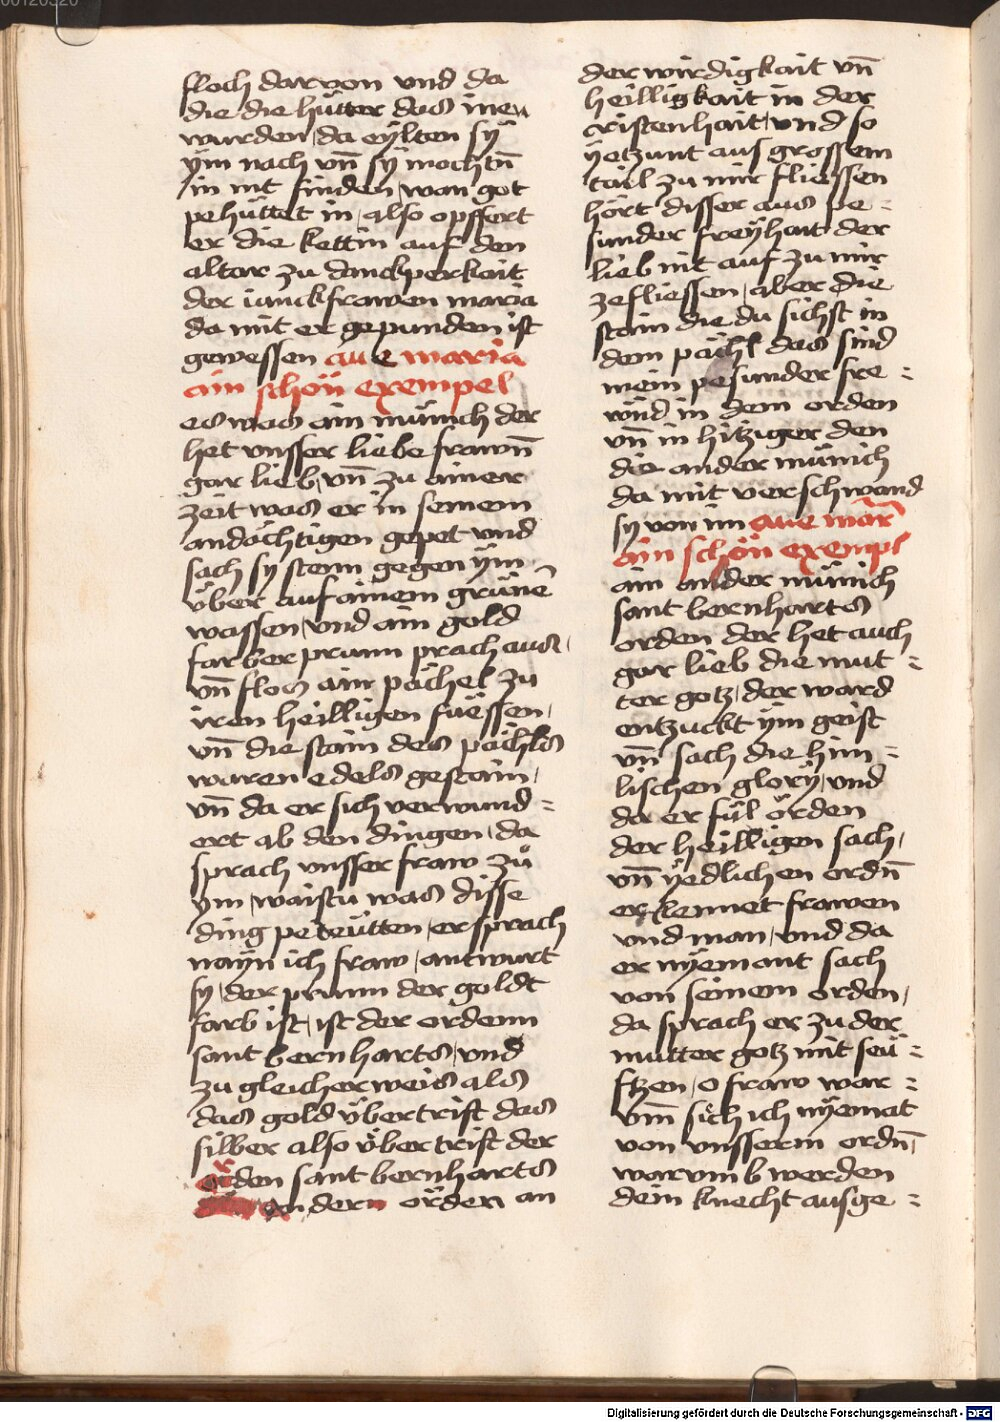 floch darvon und da
die die hütter das inen
wurden, da eÿlten sÿ
ÿm nach vn̄ sÿ mochtn̄
in nit finden, wan got
pehüttet in, also opffert
er die kettin auf den
altar zu danckperkait
der iunckfrawen maria
da mit er gepunden ist
gewessen aue maria
ain schön exempel
es was ain münich der
het vnsser liebe frawn̄
gar lieb, vn̄ zu ainer
zeit was er in seinem
andächtigen gepet vnd
sach sy stenn gegen ÿm
über auf ainem grünē
wassen, vnd ain gold
farber prunn prach aus,
vn̄ flos ain pächel zu
iren heilligen füessen,
vn̄ die stain des pächls
waren edels gestain,
vn̄ da er sich verwund=
ert ab den dingen, da
sprach vnsser fraw zů
ym, waistu was disse
ding peteütten, er sprach
naÿn ich fraw, antwurt
sy, der prunn der goldt
farb ist, ist der ordenn
sant bernharts, vnd
zu gleicher weis als
das gold übertrift das
silber also übertrift der
orden sant bernharts
andern örden an
der wirdigkait vn̄
heilligkait in der
cristenhait, vnd so
ÿetzunt aus grossem
tail zu mir fliessen
hört disser aus pe=
sunder freÿhait der
lieb nit auf zu mir
zefliessen, aber die
stain die du sichst in
dem pächl das sind
mein pesunder fre=
wnd in dem orden
vn̄ in hitziger den
die ander münich
da mit verschwand
sy von im aue mar̄
ain schön exempl
ain ander münich
sant bernharts
orden der het auch
gar lieb die mut=
ter gotz, der ward
entzuckt ÿm geist
vn̄ sach die him=
lischen glorÿ, vnd
da er fül örden
der heilligen sach,
vn̄ ÿedlichen ordn̄
erkennet frawen
vnd man, vnd da
er nÿemant sach
von seinem orden,
da sprach er zu der
mutter gotz mit seü=
ftzen, o fraw war=
vm̄ sich ich nÿemat
von vnsserm ordn̄,
warumb werden
dein knecht ausge=
Digitalisierung gefördert durch die Deutsche Forschungsgemeinschaft - DFG